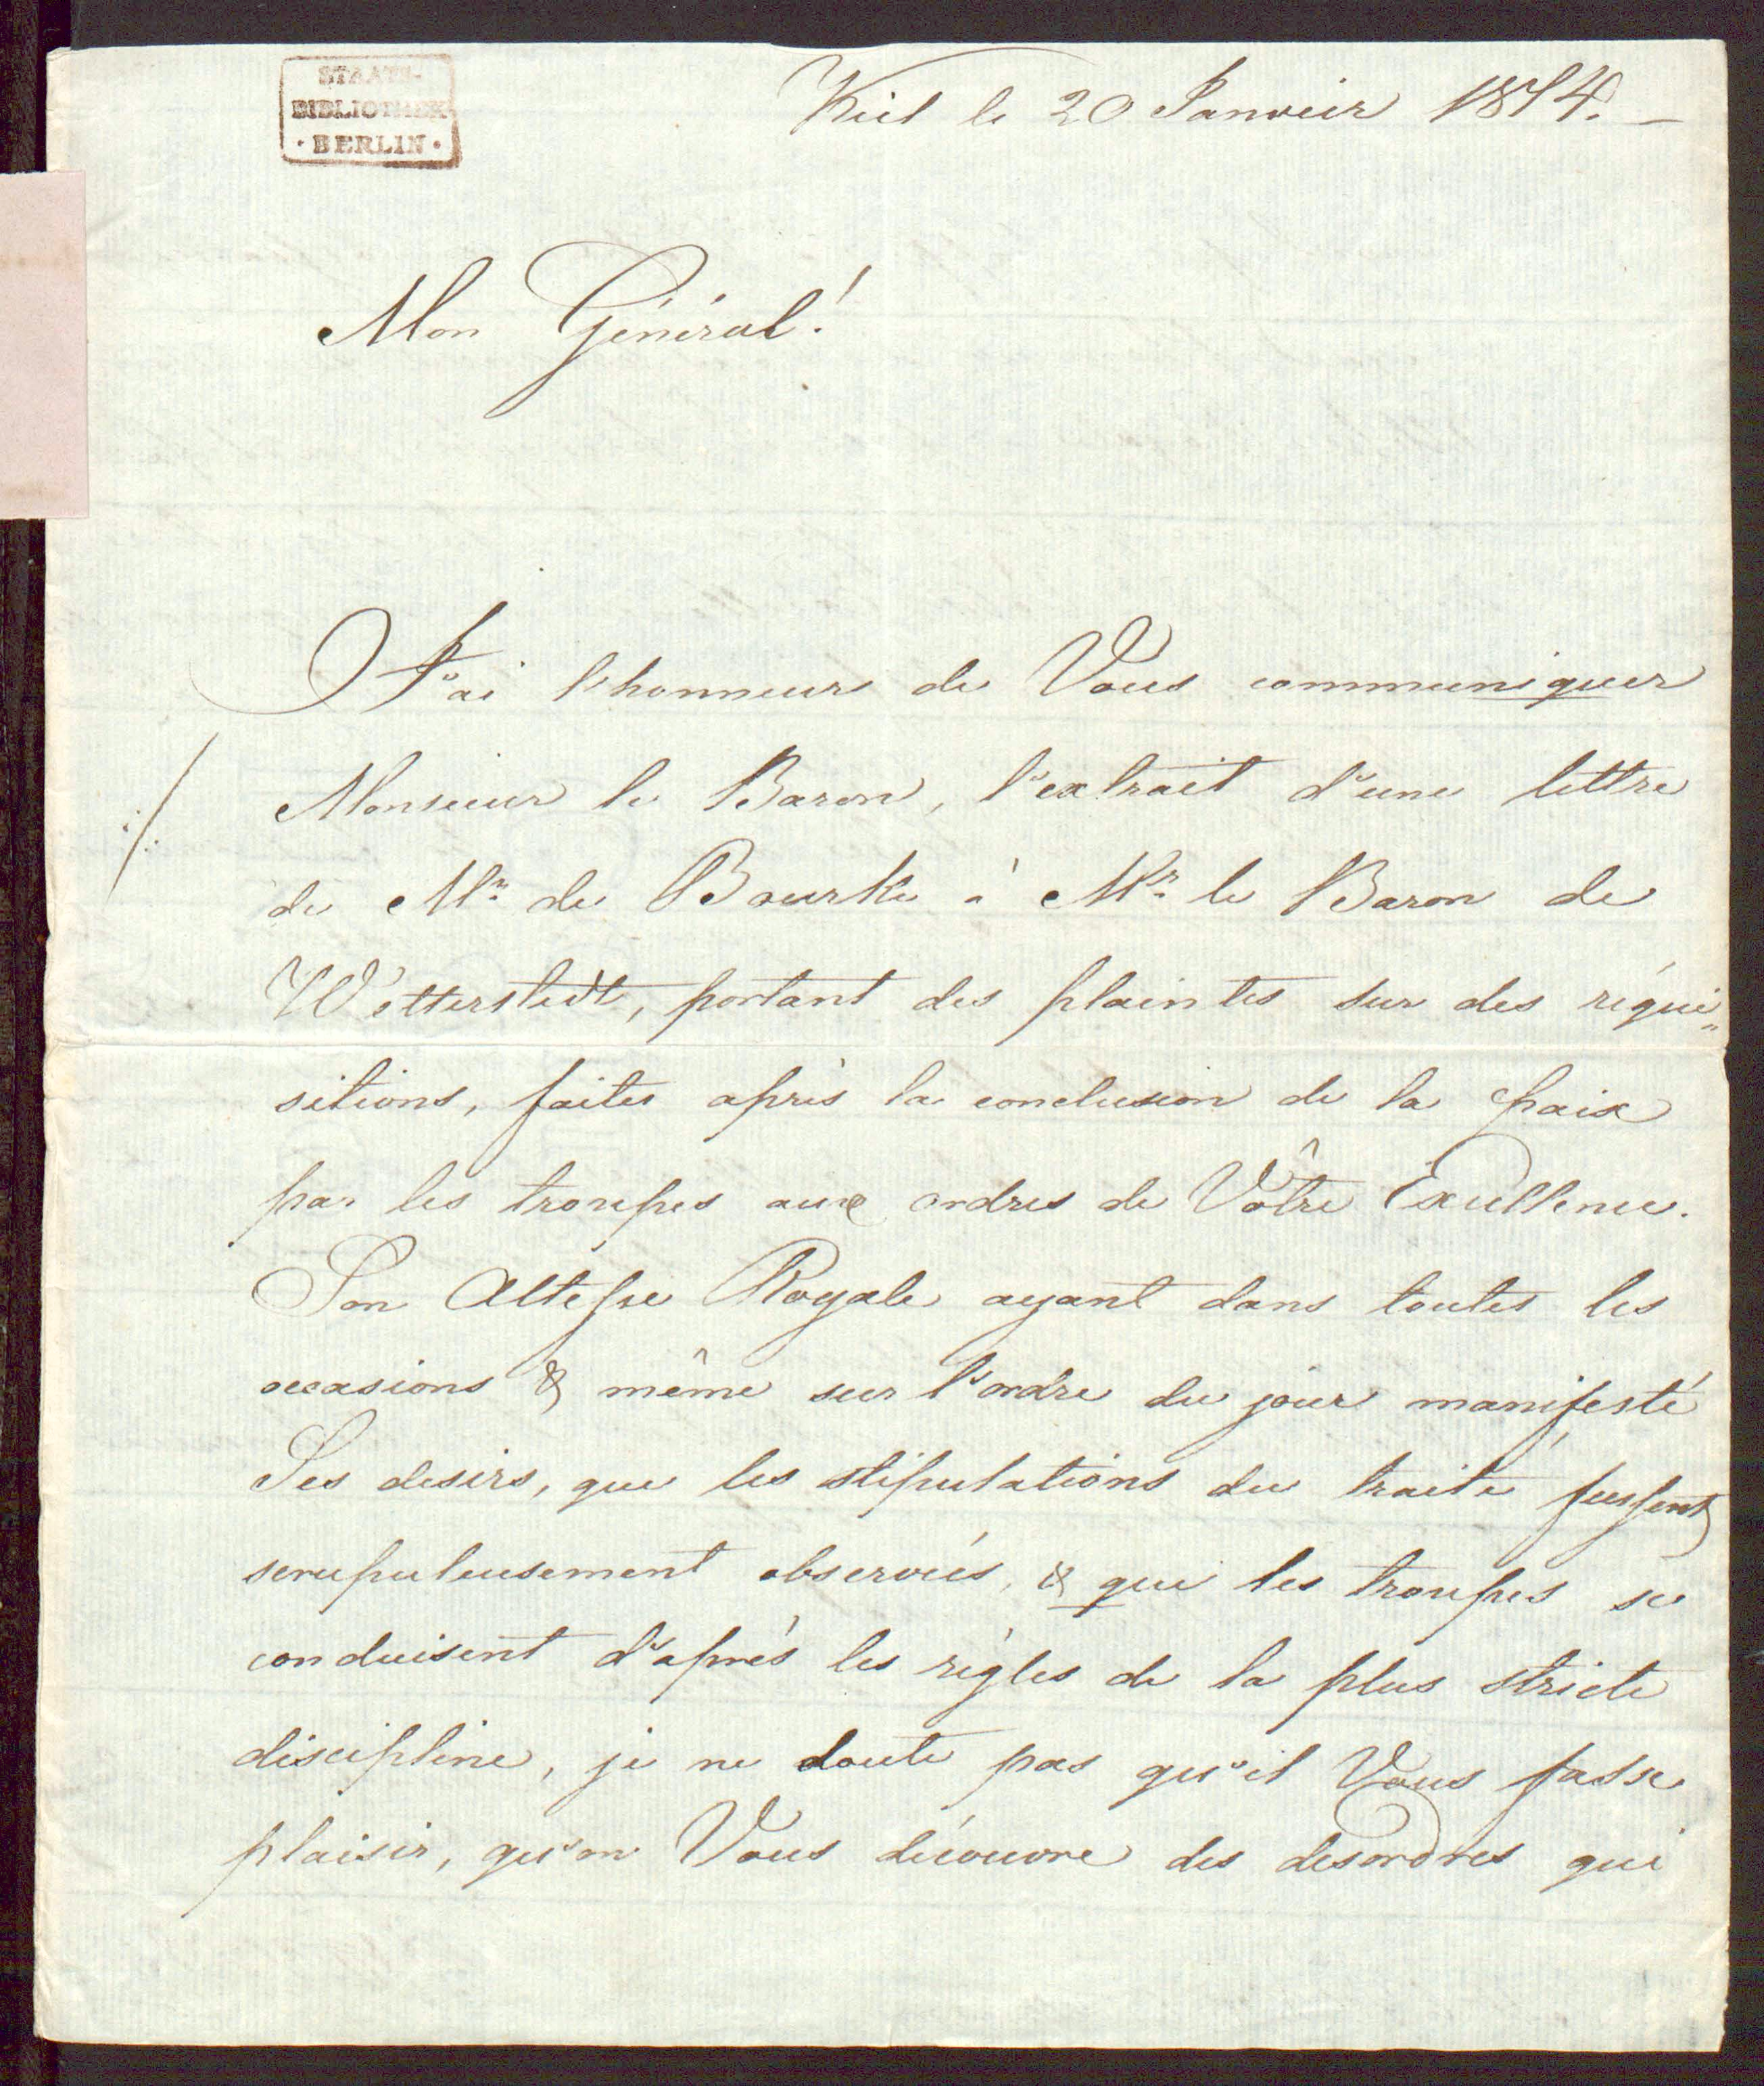 STAATS-
BIBLIOTHEK
· BERLIN ·
Kiel le 20 Janvier 1814. –
Mon Général!
J'ai l'honneur de Vous communiquer
Monsieur le Baron, l'extrait d'une lettre
de Mr. de Bourke à Mr. le Baron de
Wetterstedt, portant des plaintes sur des réqui„
sitions, faites après la conclusion de la paix
par les troupes aux ordres de Vôtre Excellence.
Son Altesse Royale ayant dans toutes les
occasions & même sur l'ordre du jour manifesté
Ses desirs, que les stipulations du traité fussent
scrupuleusement observées, & que les troupes se
conduisent d'après les règles de la plus stricte
discipline, je ne doute pas qu'il Vous fasse
plaisir, qu'on Vous découvre des desordres qui